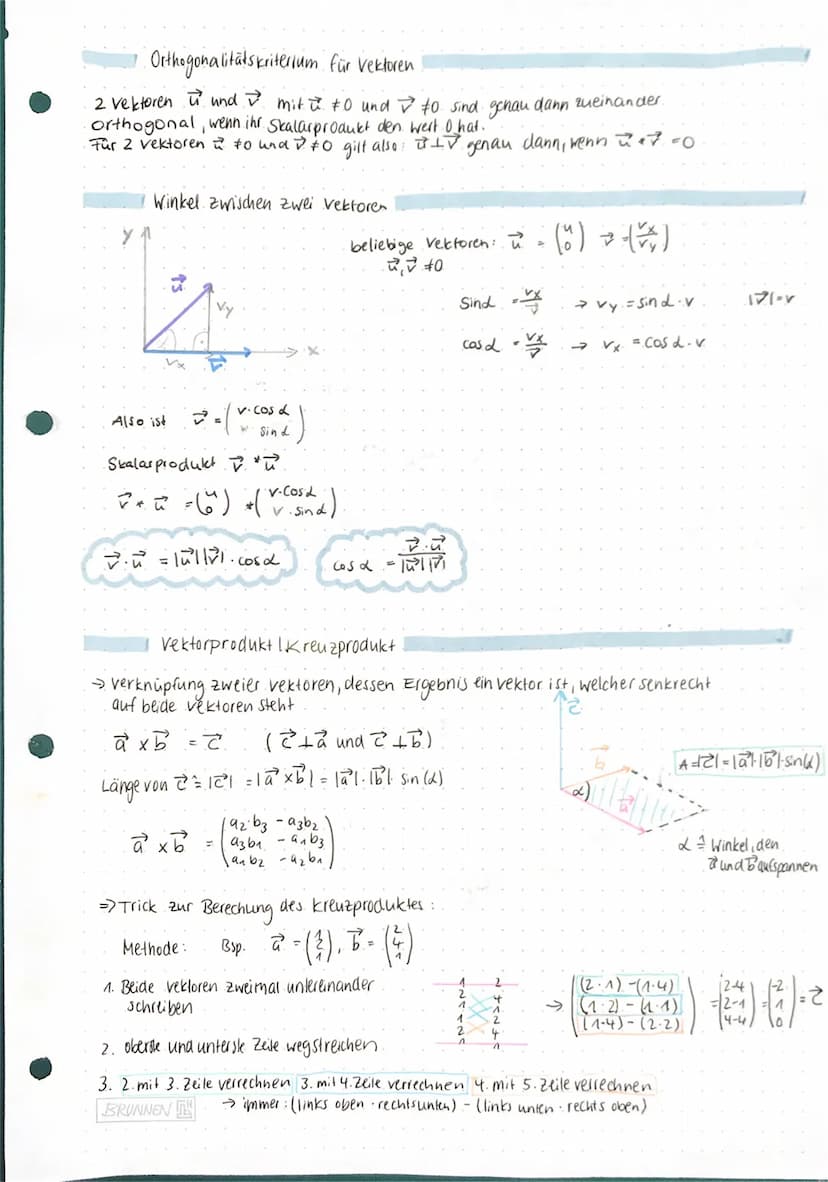 Orthogonalitätskriterium für Vektoren
2 Vektoren u⃗ und v⃗ mit u⃗ ≠0 und v⃗ ≠0 sind genau dann zueinander
orthogonal, wenn ihr Skalarprodukt den Wert 0 hat.
Für 2 Vektoren u⃗ ≠0 und v⃗ ≠0 gilt also: u⃗⊥v⃗ genau dann, wenn u⃗ * v⃗ =0
Winkel zwischen zwei Vektoren
y
beliebige Vektoren: u⃗ = (u 0) v⃗ = (vx vy)
u⃗, v⃗ ≠0
u⃗
vy
sin α = vx/v → vy = sin α · v |v⃗| = v
cos α = vx/v → vx = cos α · v
x
vx v⃗
Also ist v⃗ = (v·cos α sin α)
Skalarprodukt v⃗ * u⃗
v⃗ * u⃗ = (u 0) * (v·cos α v·sin α)
v⃗ · u⃗ = |u⃗| |v⃗| · cos α cos α = v⃗ · u⃗ / |u⃗| |v⃗|
Vektorprodukt | Kreuzprodukt
→ Verknüpfung zweier Vektoren, dessen Ergebnis ein Vektor ist, welcher senkrecht
auf beide Vektoren steht
c⃗
a⃗ × b⃗ = c⃗ (c⃗ ⊥ a⃗ und c⃗ ⊥ b⃗)
b⃗
A=|c⃗| = |a⃗|·|b⃗|·sin(α)
Länge von c⃗ ≙ |c⃗| = |a⃗ × b⃗| = |a⃗| · |b⃗| · sin (α)
α) a⃗
a⃗ × b⃗ = (a2·b3 - a3b2
a3b1 - a1b3
a1b2 - a2b1)
α ≙ Winkel, den
a⃗ und b⃗ aufspannen
⇒ Trick zur Berechung des Kreuzproduktes:
Methode: Bsp. a⃗ = (1 2 1), b⃗ = (2 4 1)
1. Beide Vektoren zweimal untereinander
schreiben
1 2
2 4
1 1
1 2
2 4
1 1
→ ((2·1) - (1·4)
(1·2) - (1·1)
(1·4) - (2·2)) = (2-4 2-1 4-4) = (-2 1 0) = c⃗
2. oberste und unterste Zeile wegstreichen
3. 2. mit 3. Zeile verrechnen 3. mit 4. Zeile verrechnen 4. mit 5. Zeile verrechnen
BRUNNEN
→ immer: (links oben · rechts unten) - (links unten · rechts oben)